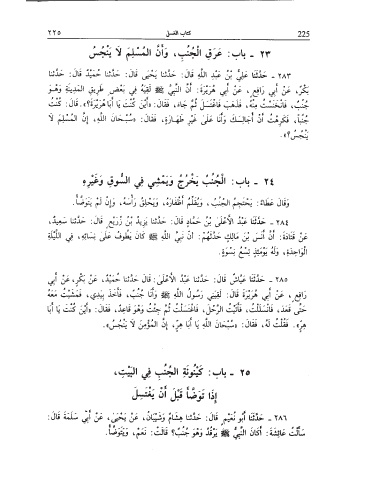 ٢٢٥ كتاب الغسل 225
٢٣ - باب: عَرَقِ الْجُنُبِ، وَأَنَّ الْمُسْلِمَ لَا يَنْجُسُ
٢٨٣ - حَدَّثَنَا عَلِيُّ بْنُ عَبْدِ اللَّهِ قَالَ: حَدَّثَنَا يَحْيَى قَالَ: حَدَّثَنَا حُمَيْدٌ قَالَ: حَدَّثَنَا
بَكْرٌ، عَنْ أَبِي رَافِعٍ، عَنْ أَبِي هُرَيْرَةَ: أَنَّ النَّبِيَّ ﷺ لَقِيَهُ فِي بَعْضِ طَرِيقِ الْمَدِينَةِ وَهُوَ
جُنُبٌ، فَانْخَنَسْتُ مِنْهُ، فَذَهَبَ فَاغْتَسَلَ ثُمَّ جَاءَ، فَقَالَ: «أَيْنَ كُنْتَ يَا أَبَا هُرَيْرَةَ؟». قَالَ: كُنْتُ
جُنُباً، فَكَرِهْتُ أَنْ أُجَالِسَكَ وَأَنَا عَلَى غَيْرِ طَهَارَةٍ، فَقَالَ: «سُبْحَانَ اللَّهِ، إِنَّ الْمُسْلِمَ لَا
يَنْجُسُ؟».
٢٤ - باب: الْجُنُبُ يَخْرُجُ وَيَمْشِي فِي السُّوقِ وَغَيْرِهِ
وَقَالَ عَطَاءٌ: يَحْتَجِمُ الْجُنُبُ، وَيُقَلِّمُ أَظْفَارَهُ، وَيَحْلِقُ رَأْسَهُ، وَإِنْ لَمْ يَتَوَضَّأْ.
٢٨٤ - حَدَّثَنَا عَبْدُ الْأَعْلَى بْنُ حَمَّادٍ قَالَ: حَدَّثَنَا يَزِيدُ بْنُ زُرَيْعٍ قَالَ: حَدَّثَنَا سَعِيدٌ،
عَنْ قَتَادَةَ: أَنَّ أَنَسَ بْنَ مَالِكٍ حَدَّثَهُمْ: أَنَّ نَبِيَّ اللَّهِ ﷺ كَانَ يَطُوفُ عَلَى نِسَائِهِ، فِي اللَّيْلَةِ
الْوَاحِدَةِ، وَلَهُ يَوْمَئِذٍ تِسْعُ نِسْوَةٍ.
٢٨٥ - حَدَّثَنَا عَيَّاشٌ قَالَ: حَدَّثَنَا عَبْدُ الْأَعْلَى: قَالَ حَدَّثَنَا حُمَيْدٌ، عَنْ بَكْرٍ، عَنْ أَبِي
رَافِعٍ، عَنْ أَبِي هُرَيْرَةَ قَالَ: لَقِيَنِي رَسُولُ اللَّهِ ﷺ وَأَنَا جُنُبٌ، فَأَخَذَ بِيَدِي، فَمَشَيْتُ مَعَهُ
حَتَّى قَعَدَ، فَانْسَلَلْتُ، فَأَتَيْتُ الرَّحْلَ، فَاغْتَسَلْتُ ثُمَّ جِئْتُ وَهُوَ قَاعِدٌ، فَقَالَ: «أَيْنَ كُنْتَ يَا أَبَا
هِرٍّ». فَقُلْتُ لَهُ، فَقَالَ: «سُبْحَانَ اللَّهِ يَا أَبَا هِرٍّ، إِنَّ الْمُؤْمِنَ لَا يَنْجُسُ».
٢٥ - باب: كَيْنُونَةِ الْجُنُبِ فِي الْبَيْتِ،
إِذَا تَوَضَّأَ قَبْلَ أَنْ يَغْتَسِلَ
٢٨٦ - حَدَّثَنَا أَبُو نُعَيْمٍ قَالَ: حَدَّثَنَا هِشَامٌ وَشَيْبَانُ، عَنْ يَحْيَى، عَنْ أَبِي سَلَمَةَ قَالَ:
سَأَلْتُ عَائِشَةَ: أَكَانَ النَّبِيُّ ﷺ يَرْقُدُ وَهُوَ جُنُبٌ؟ قَالَتْ: نَعَمْ، وَيَتَوَضَّأُ.